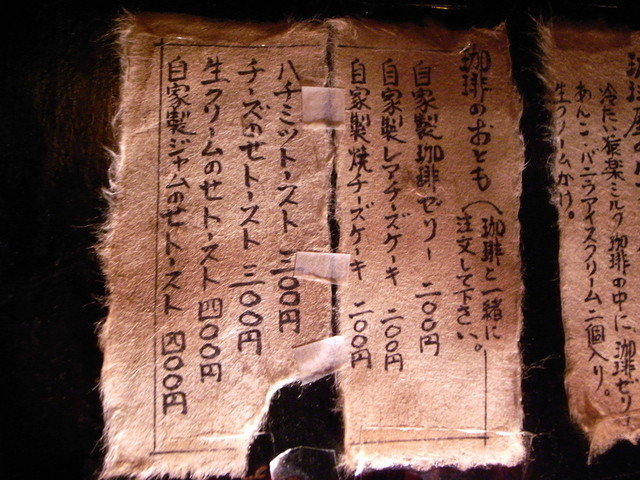 冷たい猿楽ミルク珈琲の中に珈琲ゼリー
あんこ・バニラアイスクリーム二個入り。
生クリームがけ。
珈琲のおとも（珈琲と一緒に
注文して下さい。
自家製珈琲ゼリー 二〇〇円
自家製レアチーズケーキ 二〇〇円
自家製焼チーズケーキ 二〇〇円
ハチミツトースト 三〇〇円
チーズのせトースト 三〇〇円
生クリームのせトースト 四〇〇円
自家製ジャムのせトースト 四〇〇円